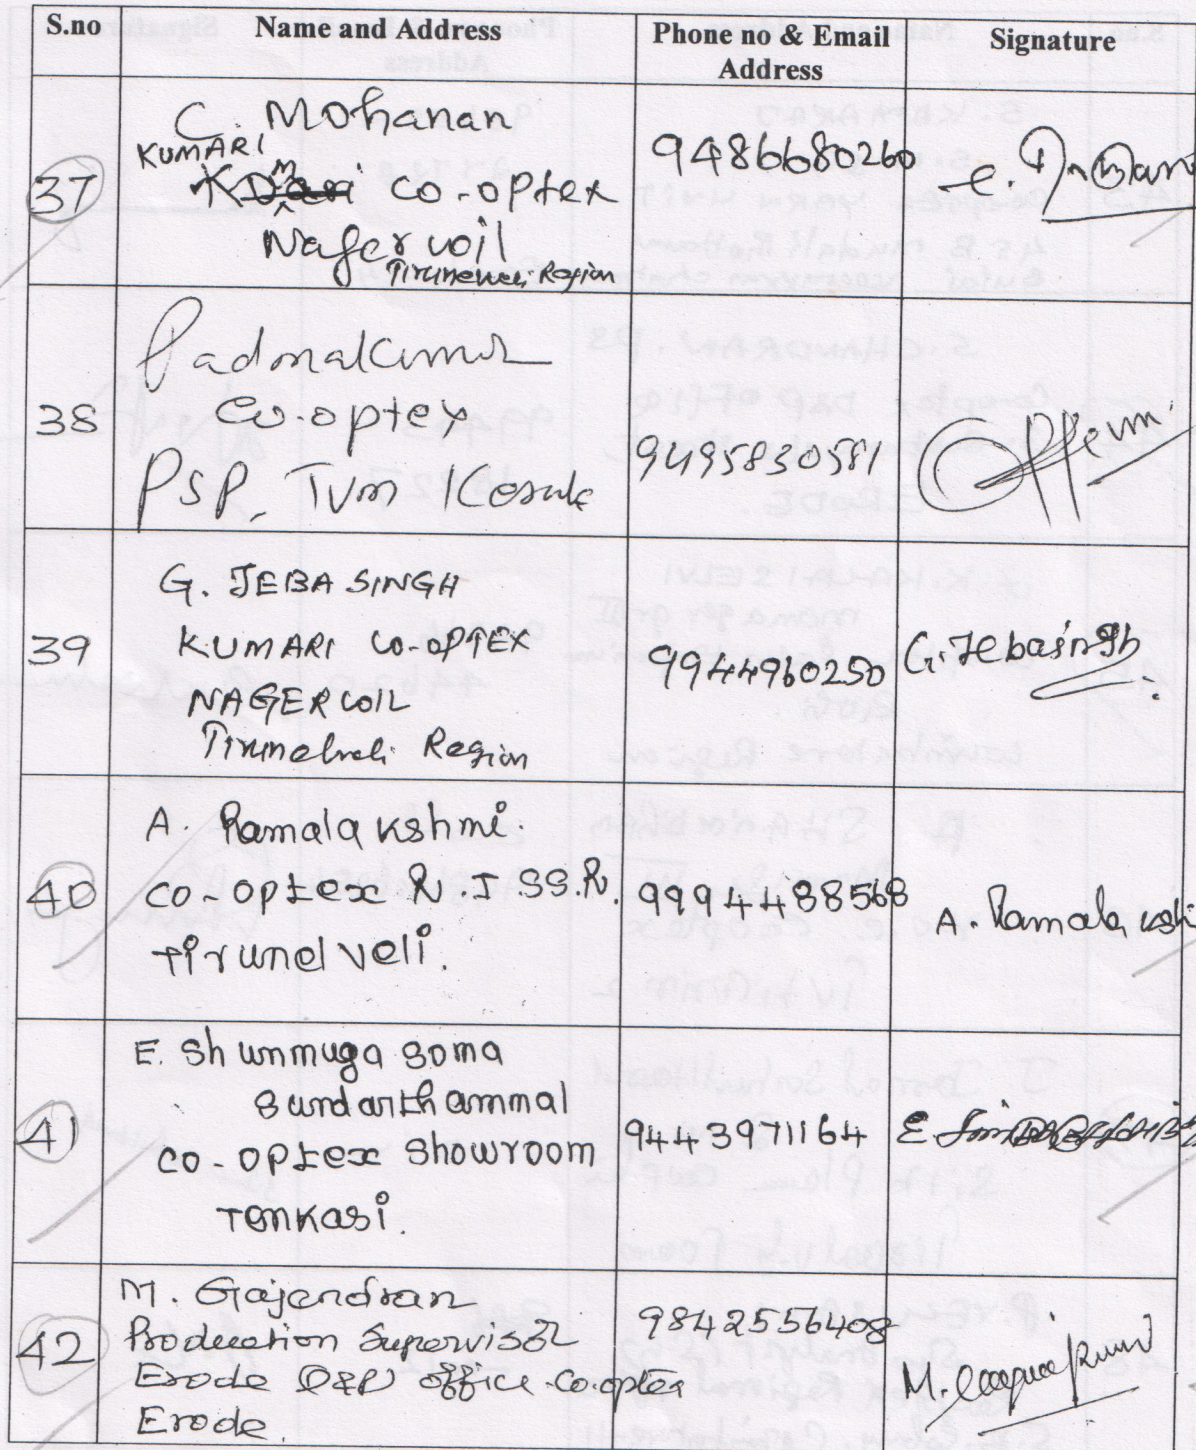 S.no Name and Address Phone no & Email Address Signature
37
C. Mohanan
KUMARI
co-optex
Nagercoil
Tirunelveli Region
9486680260
38
Padmakumar
Co-optex
PSP, Tvm Kerala
9495830581
39
G. JEBA SINGH
KUMARI CO-OPTEX
NAGERCOIL
Tirunelveli Region
9944960250
G. Jebasingh
40
A. Ramalakshmi.
CO-Optex R.I.SS.R.
tirunelveli.
9994488568
A. Ramalakshi
41
E. Shunmuga Soma
Sundarithammal
CO-Optex Showroom
Tenkasi.
9443971164
42
M. Gajendran
Production Supervisor
Erode D&P office-Cooptex
Erode.
9842556408